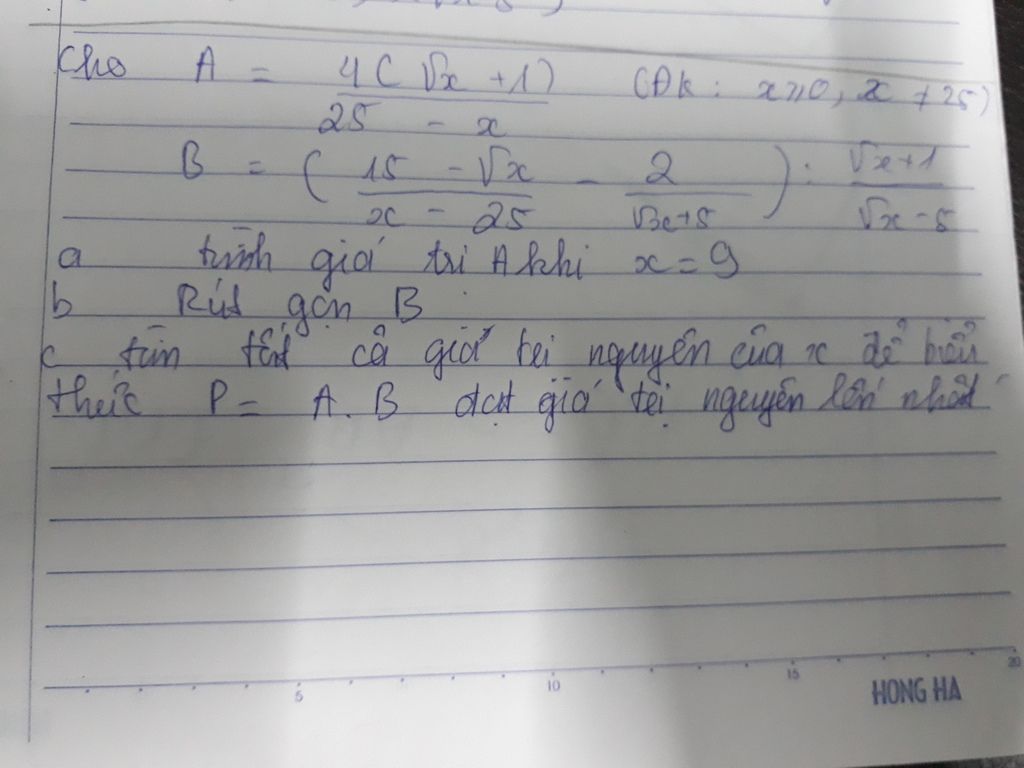 Cho A = 4(√x + 1) / 25 - x (Đk: x ≥ 0, x ≠ 25)
B = (15 - √x / x - 25 - 2 / √x + 5) : √x + 1 / √x - 5
a tính giá trị A khi x = 9
b Rút gọn B
c tìm tất cả giá trị nguyên của x để biểu
thức P = A.B đạt giá trị nguyên lớn nhất
5 10 15 20
HONG HA